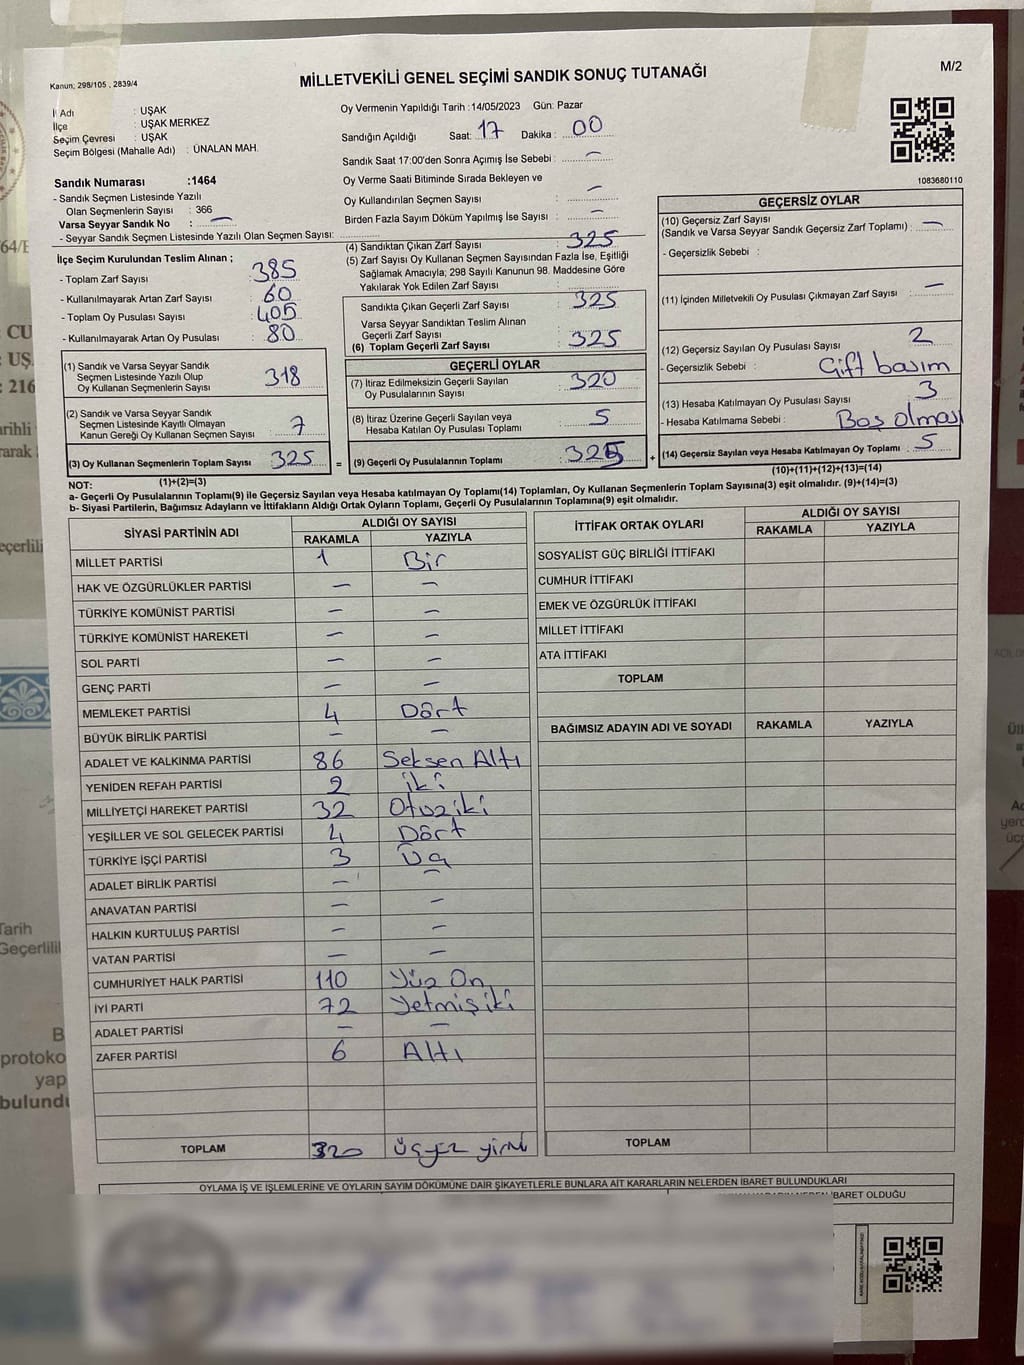 Kanun; 298/105 , 2839/4
MİLLETVEKİLİ GENEL SEÇİMİ SANDIK SONUÇ TUTANAĞI
M/2
İl Adı : UŞAK
İlçe : UŞAK MERKEZ
Seçim Çevresi : UŞAK
Seçim Bölgesi (Mahalle Adı) : ÜNALAN MAH.
Sandık Numarası :1464
- Sandık Seçmen Listesinde Yazılı
Olan Seçmenlerin Sayısı : 366
Varsa Seyyar Sandık No : —
- Seyyar Sandık Seçmen Listesinde Yazılı Olan Seçmen Sayısı:
İlçe Seçim Kurulundan Teslim Alınan ;
- Toplam Zarf Sayısı 385
- Kullanılmayarak Artan Zarf Sayısı 60
- Toplam Oy Pusulası Sayısı 405
- Kullanılmayarak Artan Oy Pusulası 80
(1) Sandık ve Varsa Seyyar Sandık
Seçmen Listesinde Yazılı Olup
Oy Kullanan Seçmenlerin Sayısı 318
(2) Sandık ve Varsa Seyyar Sandık
Seçmen Listesinde Kayıtlı Olmayan
Kanun Gereği Oy Kullanan Seçmen Sayısı 7
(3) Oy Kullanan Seçmenlerin Toplam Sayısı 325
Oy Vermenin Yapıldığı Tarih :14/05/2023 Gün: Pazar
Sandığın Açıldığı Saat: 17 Dakika : 00
Sandık Saat 17:00'den Sonra Açımış İse Sebebi : —
Oy Verme Saati Bitiminde Sırada Bekleyen ve
Oy Kullandırılan Seçmen Sayısı : —
Birden Fazla Sayım Döküm Yapılmış İse Sayısı : —
(4) Sandıktan Çıkan Zarf Sayısı 325
(5) Zarf Sayısı Oy Kullanan Seçmen Sayısından Fazla İse, Eşitliği
Sağlamak Amacıyla; 298 Sayılı Kanunun 98. Maddesine Göre
Yakılarak Yok Edilen Zarf Sayısı
Sandıkta Çıkan Geçerli Zarf Sayısı 325
Varsa Seyyar Sandıktan Teslim Alınan
Geçerli Zarf Sayısı
(6) Toplam Geçerli Zarf Sayısı 325
GEÇERLİ OYLAR
(7) İtiraz Edilmeksizin Geçerli Sayılan
Oy Pusulalarının Sayısı 320
(8) İtiraz Üzerine Geçerli Sayılan veya
Hesaba Katılan Oy Pusulaları Toplamı 5
= (9) Geçerli Oy Pusulalarının Toplamı 325 +
1083680110
GEÇERSİZ OYLAR
(10) Geçersiz Zarf Sayısı
(Sandık ve Varsa Seyyar Sandık Geçersiz Zarf Toplamı) : —
- Geçersizlik Sebebi :
(11) İçinden Milletvekili Oy Pusulası Çıkmayan Zarf Sayısı : —
(12) Geçersiz Sayılan Oy Pusulası Sayısı 2
- Geçersizlik Sebebi : Çift basım
(13) Hesaba Katılmayan Oy Pusulası Sayısı 3
- Hesaba Katılmama Sebebi : Boş olması
(14) Geçersiz Sayılan veya Hesaba Katılmayan Oy Toplamı 5
NOT: (1)+(2)=(3) (10)+(11)+(12)+(13)=(14)
a- Geçerli Oy Pusulalarının Toplamı(9) ile Geçersiz Sayılan veya Hesaba katılmayan Oy Toplamı(14) Toplamları, Oy Kullanan Seçmenlerin Toplam Sayısına(3) eşit olmalıdır. (9)+(14)=(3)
b- Siyasi Partilerin, Bağımsız Adayların ve İttifakların Aldığı Ortak Oyların Toplamı, Geçerli Oy Pusulalarının Toplamına(9) eşit olmalıdır.
SİYASİ PARTİNİN ADI ALDIĞI OY SAYISI
RAKAMLA YAZIYLA
MİLLET PARTİSİ 1 Bir
HAK VE ÖZGÜRLÜKLER PARTİSİ — —
TÜRKİYE KOMÜNİST PARTİSİ — —
TÜRKİYE KOMÜNİST HAREKETİ — —
SOL PARTİ — —
GENÇ PARTİ — —
MEMLEKET PARTİSİ 4 Dört
BÜYÜK BİRLİK PARTİSİ — —
ADALET VE KALKINMA PARTİSİ 86 Seksen Altı
YENİDEN REFAH PARTİSİ 2 iki
MİLLİYETÇİ HAREKET PARTİSİ 32 Otuziki
YEŞİLLER VE SOL GELECEK PARTİSİ 4 Dört
TÜRKİYE İŞÇİ PARTİSİ 3 Üç
ADALET BİRLİK PARTİSİ — —
ANAVATAN PARTİSİ — —
HALKIN KURTULUŞ PARTİSİ — —
VATAN PARTİSİ — —
CUMHURİYET HALK PARTİSİ 110 Yüz On
İYİ PARTİ 72 Yetmişiki
ADALET PARTİSİ — —
ZAFER PARTİSİ 6 Altı
TOPLAM 320 Üçyüz yirmi
İTTİFAK ORTAK OYLARI ALDIĞI OY SAYISI
RAKAMLA YAZIYLA
SOSYALİST GÜÇ BİRLİĞİ İTTİFAKI
CUMHUR İTTİFAKI
EMEK VE ÖZGÜRLÜK İTTİFAKI
MİLLET İTTİFAKI
ATA İTTİFAKI
TOPLAM
BAĞIMSIZ ADAYIN ADI VE SOYADI RAKAMLA YAZIYLA
TOPLAM
OYLAMA İŞ VE İŞLEMLERİNE VE OYLARIN SAYIM DÖKÜMÜNE DAİR ŞİKAYETLERLE BUNLARA AİT KARARLARIN NELERDEN İBARET BULUNDUKLARI
İBARET OLDUĞU